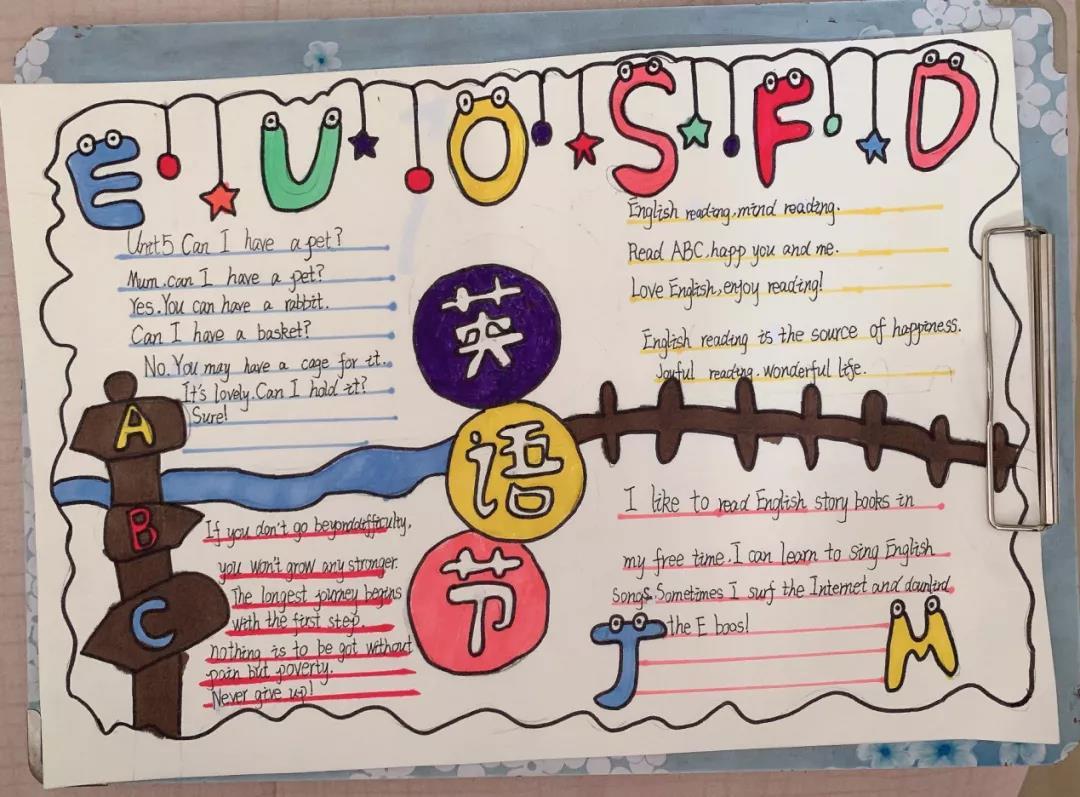 E U O S F D
Unit5 Can I have a pet?
Mum.can I have a pet?
Yes.You can have a rabbit.
Can I have a basket?
No.You may have a cage for it.
It's lovely.Can I hold it?
Sure!
English reading.mind reading.
Read ABC.happ you and me.
Love English,enjoy reading!
English reading is the source of happiness.
Joyful reading.wonderful life.
英
语
节
A
B
C
If you don't go beyond difficulty,
you won't grow any stronger.
The longest journey begins
with the first step.
nothing is to be got without
pain but poverty.
Never give up!
I like to read English story books in
my free time.I can learn to sing English
songs.Sometimes I surf the Internet and
the E boos!
J M